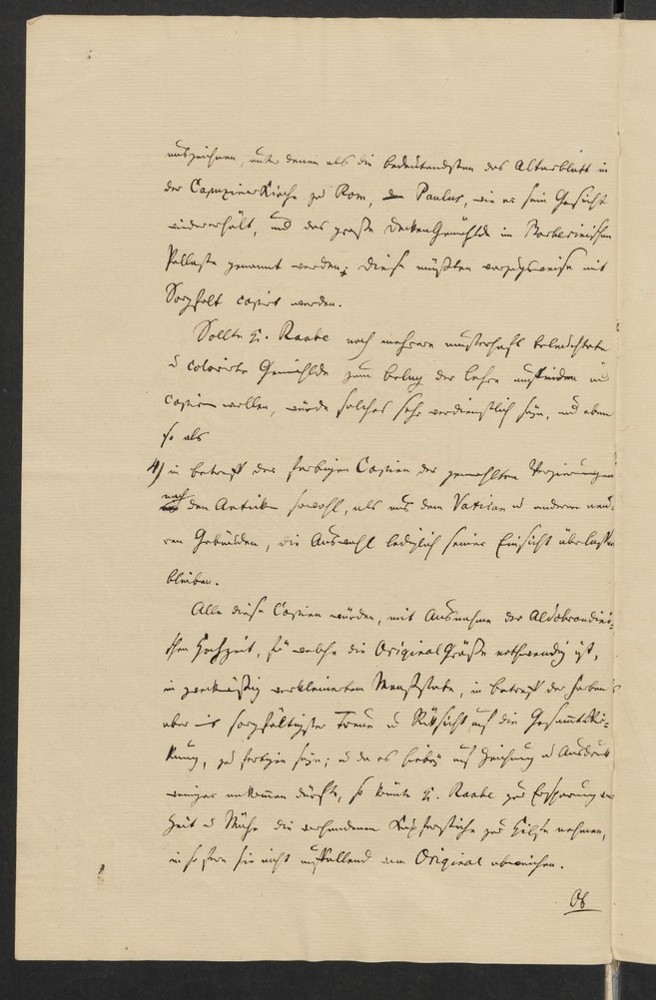 auszeichnen, unter denen als die bedeutendsten das Altarblatt in
der Capuziner Kirche zu Rom, Paulus, wie er sein Gesicht
wiedererhält, und das große Deckengemählde im Barberinischen
Pallaste genannt werden; diese müßten vorzugsweise mit
Sorgfalt copirt werden.
Sollte H. Raabe noch mehrere musterhaft beleuchtete
u colorirte Gemählde zum Beleg der Lehre auffinden und
copiren wollen, würde solches sehr verdienstlich seyn, und eben
so als
4) in betreff der farbigen Copien der gemahlten Verzierungen
nach den Antiken sowohl, als aus dem Vatican u anderen neu-
ren Gebäuden, die Auswahl lediglich seiner Einsicht überlassen
bleiben.
Alle diese Copien würden, mit Ausnahme der Aldobrandini-
schen Hochzeit, für welche die Original Größe nothwendig ist,
in zweckmäßig verkleinertem Maaßstabe, in betreff der Farben
aber mit sorgfältigster Treue u Rücksicht auf die Gesammtwir-
kung, zu fertigen seyn; u da es hiebey auf Zeichnung u Ausdruck
weniger ankommen dürfte, so könnte H. Raabe zur Ersparung von
Zeit u Mühe die vorhandenen Kupferstiche zur Hilfe nehmen,
in so fern sie nicht auffallend vom Original abweichen.
Ob